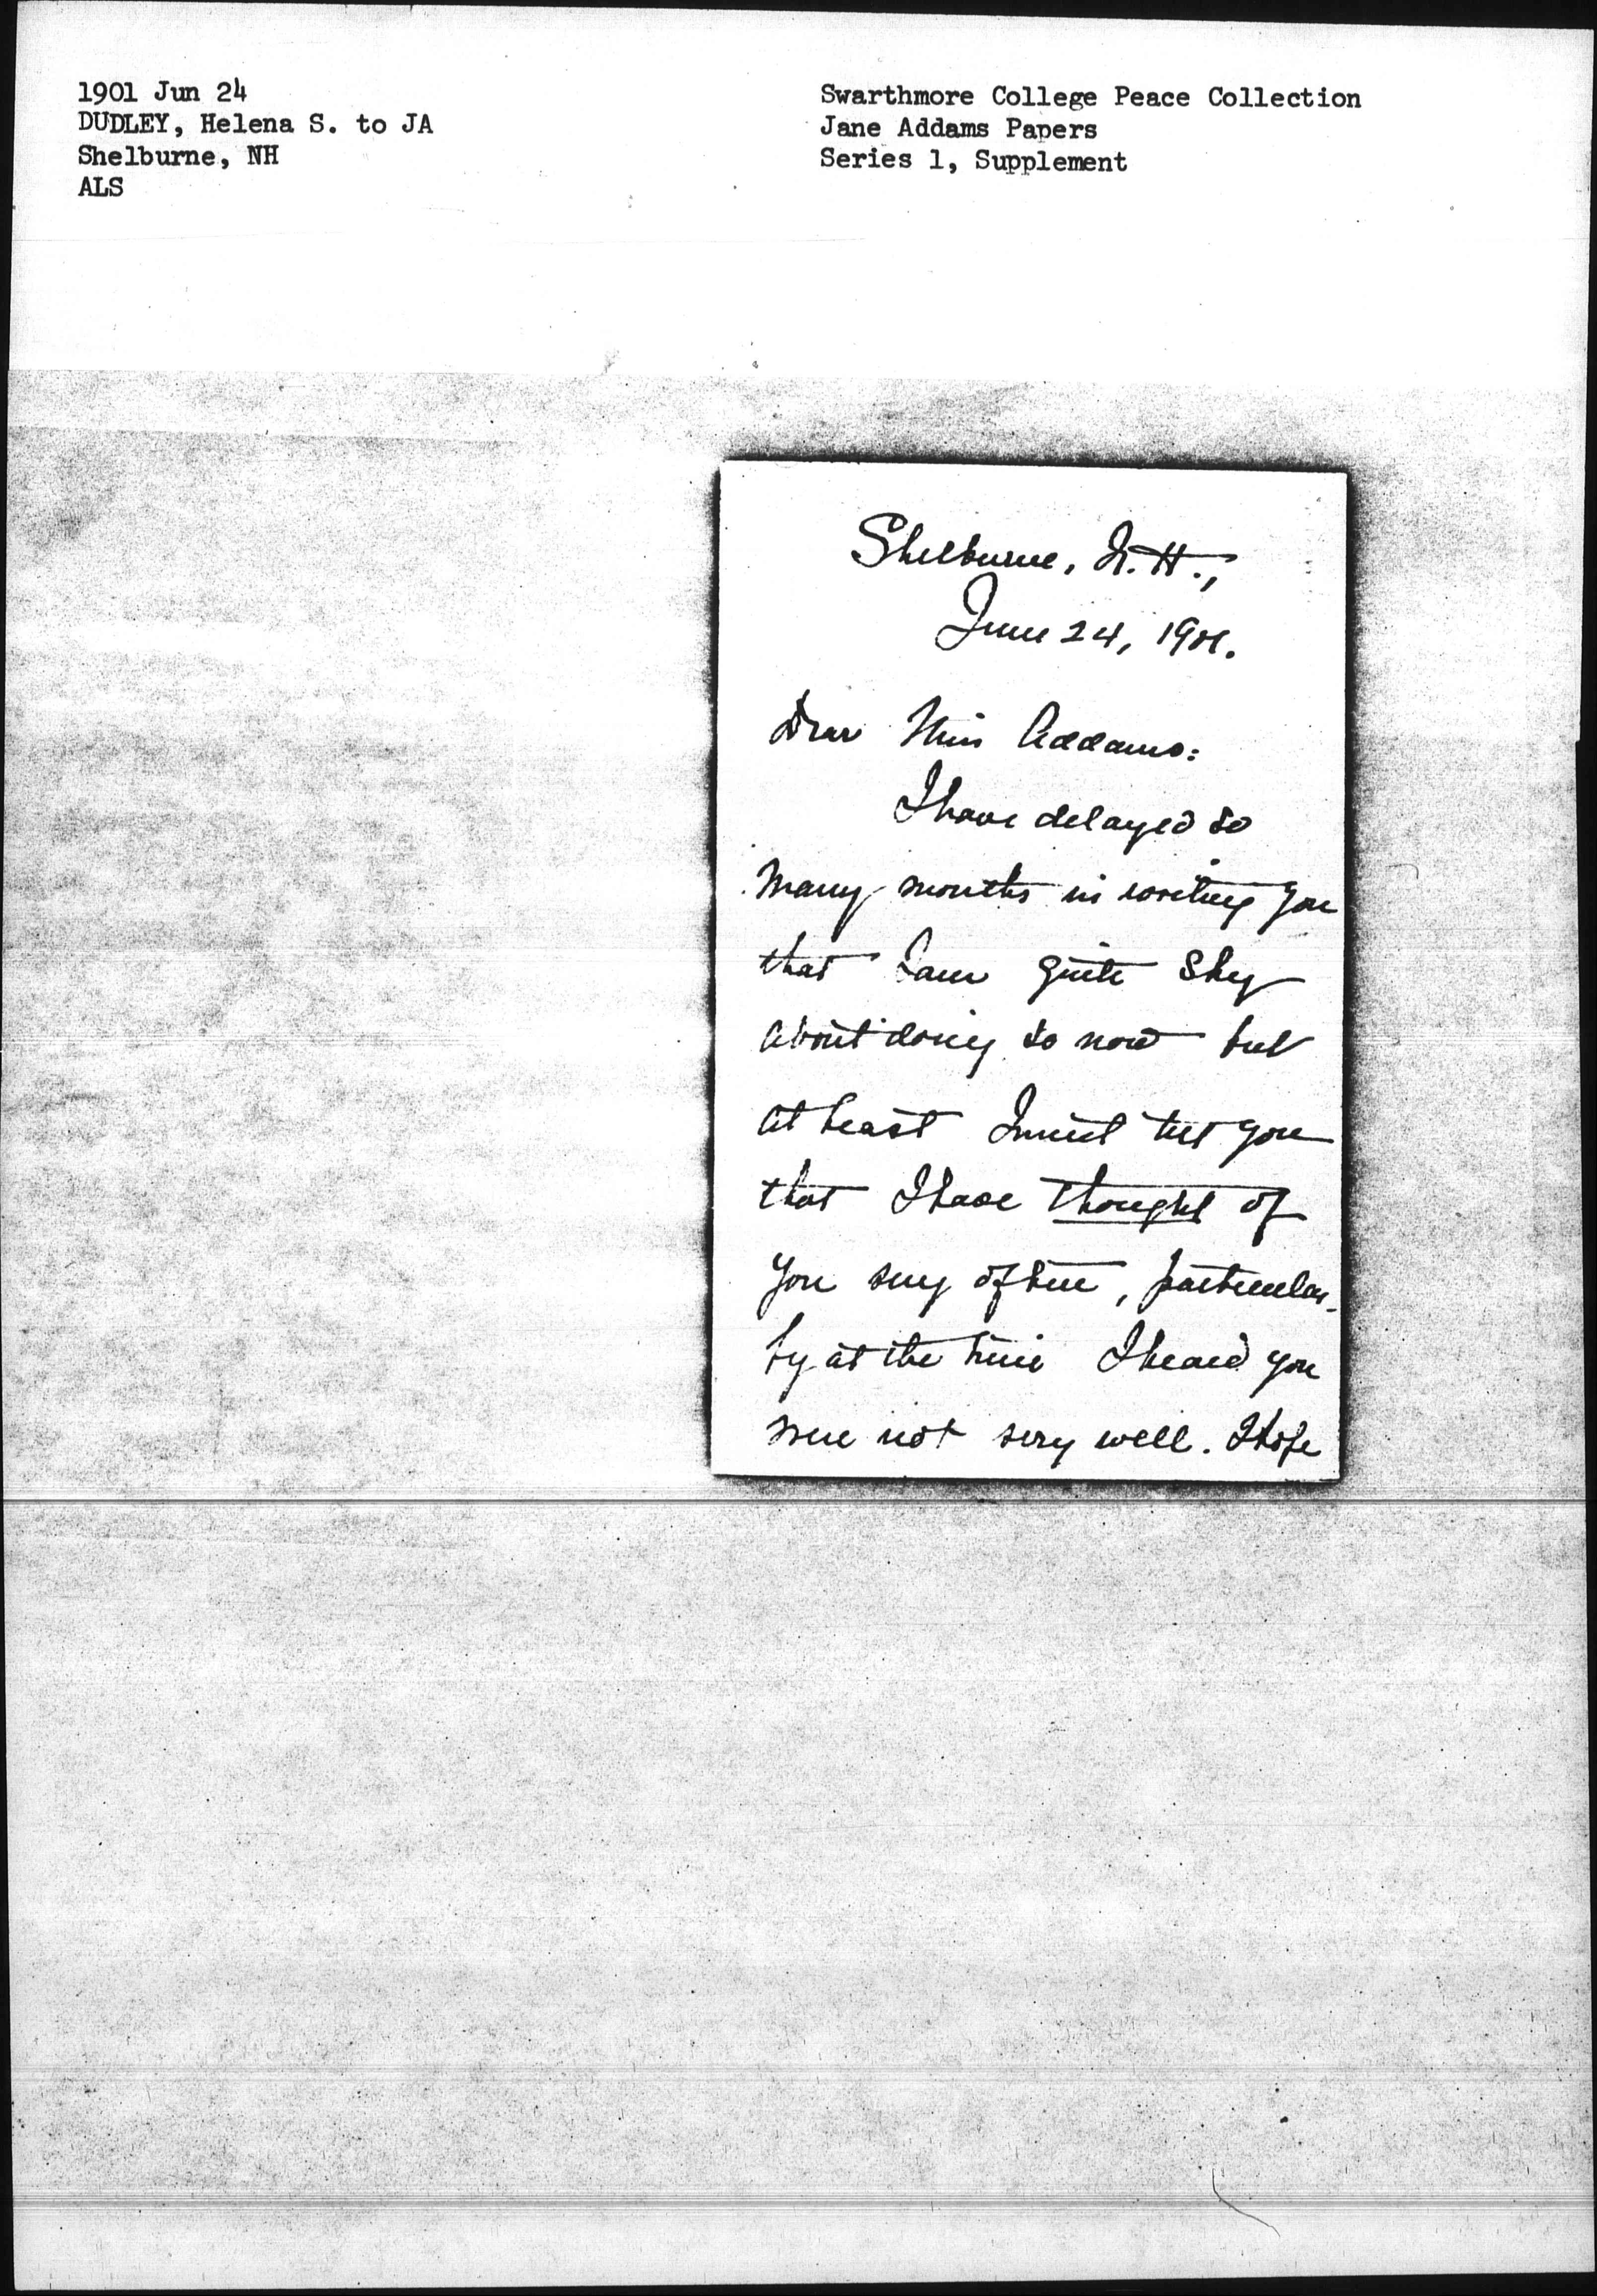 1901 Jun 24
DUDLEY, Helena S. to JA
Shelburne, NH
ALS
Swarthmore College Peace Collection
Jane Addams Papers
Series 1, Supplement
Shelburne, N.H.,
June 24, 1901.
Dear Miss Addams:
I have delayed so
many months in writing you
that I am quite shy
about doing so now but
at least I must tell you
that I have thought of
you very often, particular-
ly at the time I heard you
were not very well. I hope